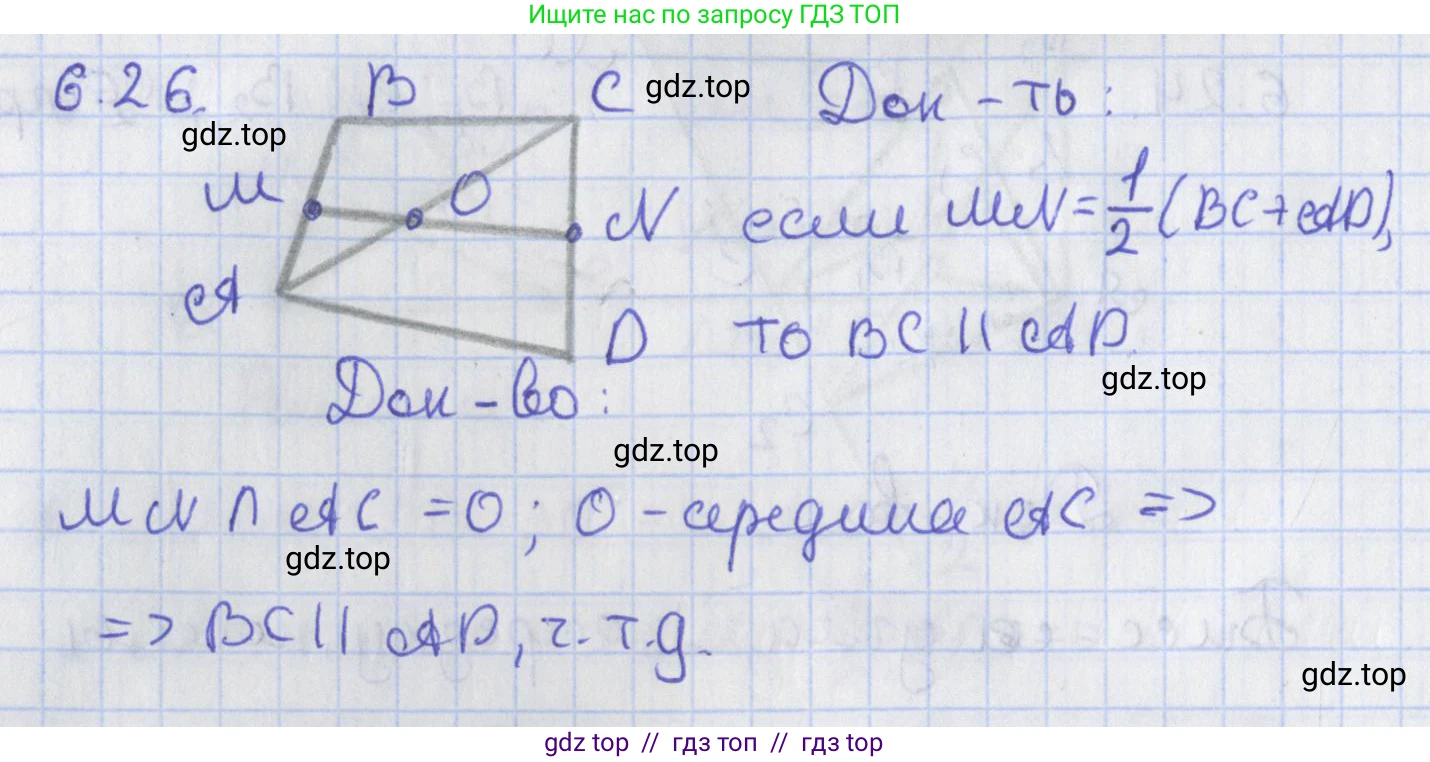 Ищите нас по запросу ГДЗ ТОП
6.26. B C gdz.top Док-ть:
gdz.top
M O N если MN = 1/2 (BC + AD),
A D то BC || AD
gdz.top
Док-во:
gdz.top
MN ∩ AC = O; O - середина AC =>
gdz.top
=> BC || AD, ч.т.д.
gdz.top
gdz top // гдз топ // гдз top